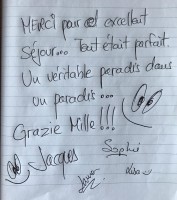 MERCI par cet excellent
Séjour... Tout était parfait.
Un véritable paradis dans
un paradis...
Grazie Mille !!!
Jacques Sophi